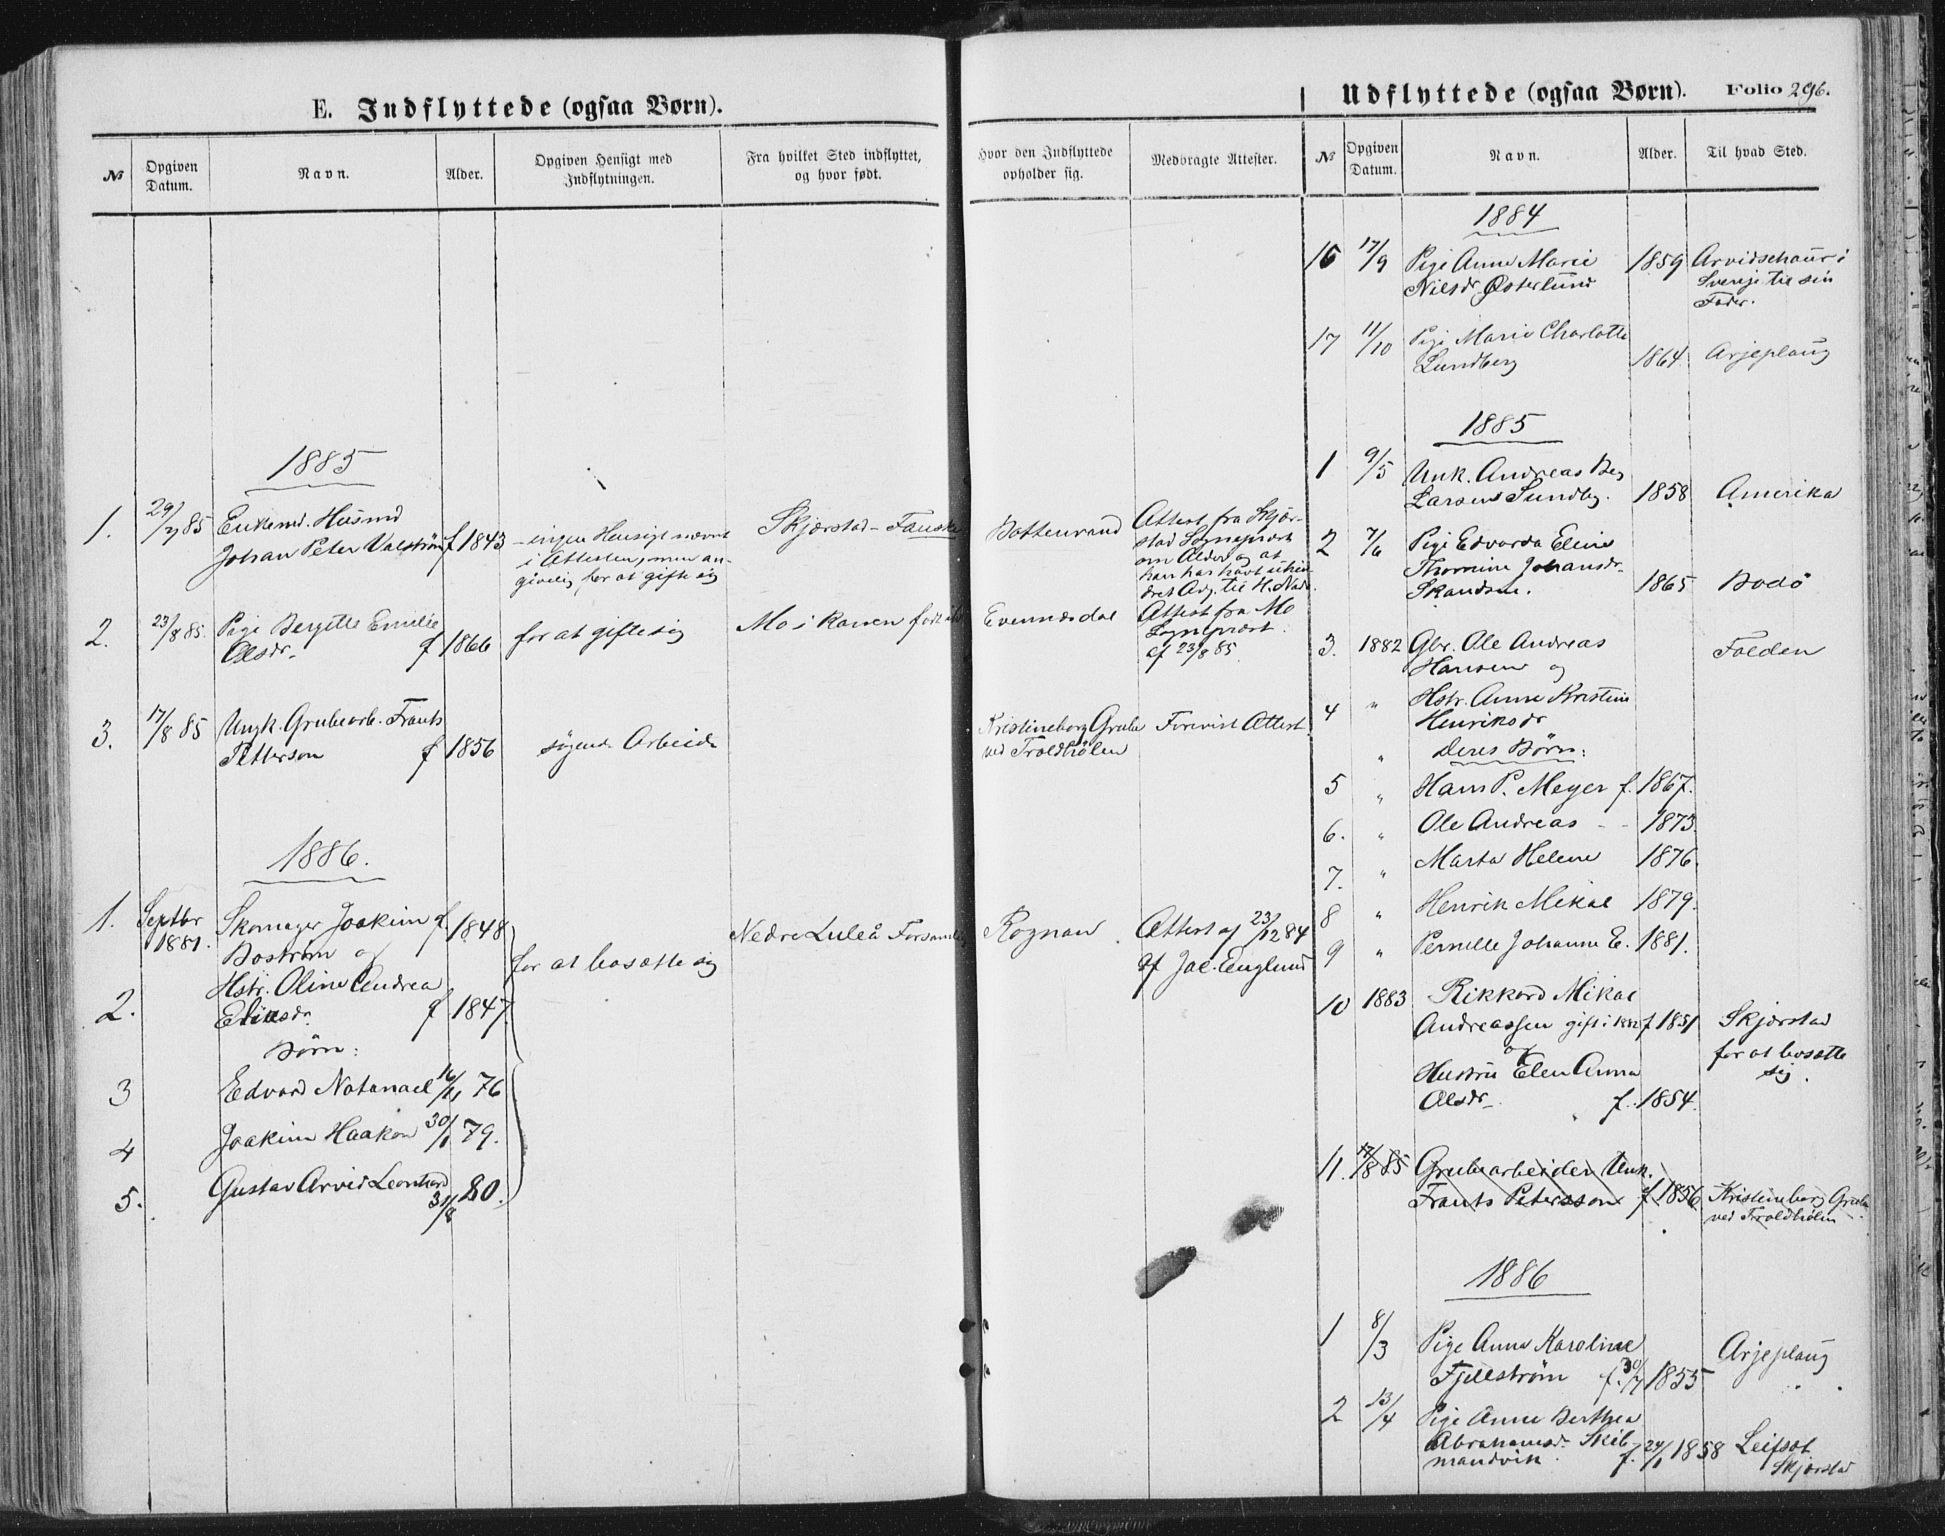 E. Indflyttede (ogsaa Børn).
№
Opgiven
Datum.
Navn.
Alder.
Opgiven Hensigt med
Indflytningen.
Fra hvilket Sted indflyttet,
og hvor født.
Hvor den Indflyttede
opholder sig.
Medbragte Attester.
1885
1. 29/7 85 Enkemd. Husmd
Johan Peter Valstrøm f 1843
- ingen Hensigt nævnt
i Attesten, men an-
givelig for at gifte sig
Skjærstad - Fauske
Bottenvand
Attest fra Skjær-
stad Sognepræst
om Alder og at
2. 23/8 85. Pige Bergitte Emilie
Olsdr. f 1866
for at gifte sig
Mo i Ranen
Evennesdal
Attest fra Mo
Sognepræst.
af 23/8 85.
3. 17/8 85 Ungk. Grubearb. Frants
Petterson f 1856
søgende Arbeide
Kristineborg Grube
ved Troldhølen
Forevist Attest
1886.
1. Septbr
1881.
Skomager Joakim f 1848
Bostrøm og
2. Hstr. Oline Andrea
Eliasdr. f 1847
Børn:
3 Edvard Natanael 16/11 76
4 Joakim Haakon 30/1 79.
5. Gustav Arvid Leonhard
31/8 80.
for at bosætte sig
Nedre Luleå
Rognan
Attest af 23/12 84
af Jac. Englund
Udflyttede (ogsaa Børn). Folio 296.
№
Opgiven
Datum.
Navn.
Alder.
Til hvad Sted.
1884
16 17/9 Pige Anne Marie 1859 Arvidschaur i
Nilsdr. Østerlund Sverige til sin
Fader.
17 11/10 Pige Marie Charlotte
Lundberg 1864. Arjeplaug
1885
1 9/5 Unk. Andreas Berg
Larsens Sundby. 1858 Amerika
2 7/6 Pige Edvarda Eline
Thomine Johansdr.
Skandsen. 1865 Bodø
3. 1882 Gbr. Ole Andreas Folden
Hansen og
4 " Hstr. Anne Kristine
Henriksdr
" Deres Børn:
5 " Hans P. Meyer f. 1867.
6. " Ole Andreas - - 1873.
7. " Marta Helene 1876.
8 " Henrik Mikal 1879.
9 " Pernille Johanne E. 1881.
10 1883 Rikkard Mikal
Andreassen gift i 1882 f 1851 Skjærstad
og for at bosætte
Hustru Elen Anna sig.
Olsdr. f. 1854.
11. 17/8 85 Grubearbeider Unk.
Frants Petersson f 1856. Kristineborg Grube
ved Troldhølen
1886
1 8/3 Pige Anne Karoline Arjeplaug
Fjellstrøm f. 30/7 1855
2 13/4 Pige Anne Berthea
Abrahamsd. Skib-
mandvik. f. 24/1 1858 Leifset
Skjærstad